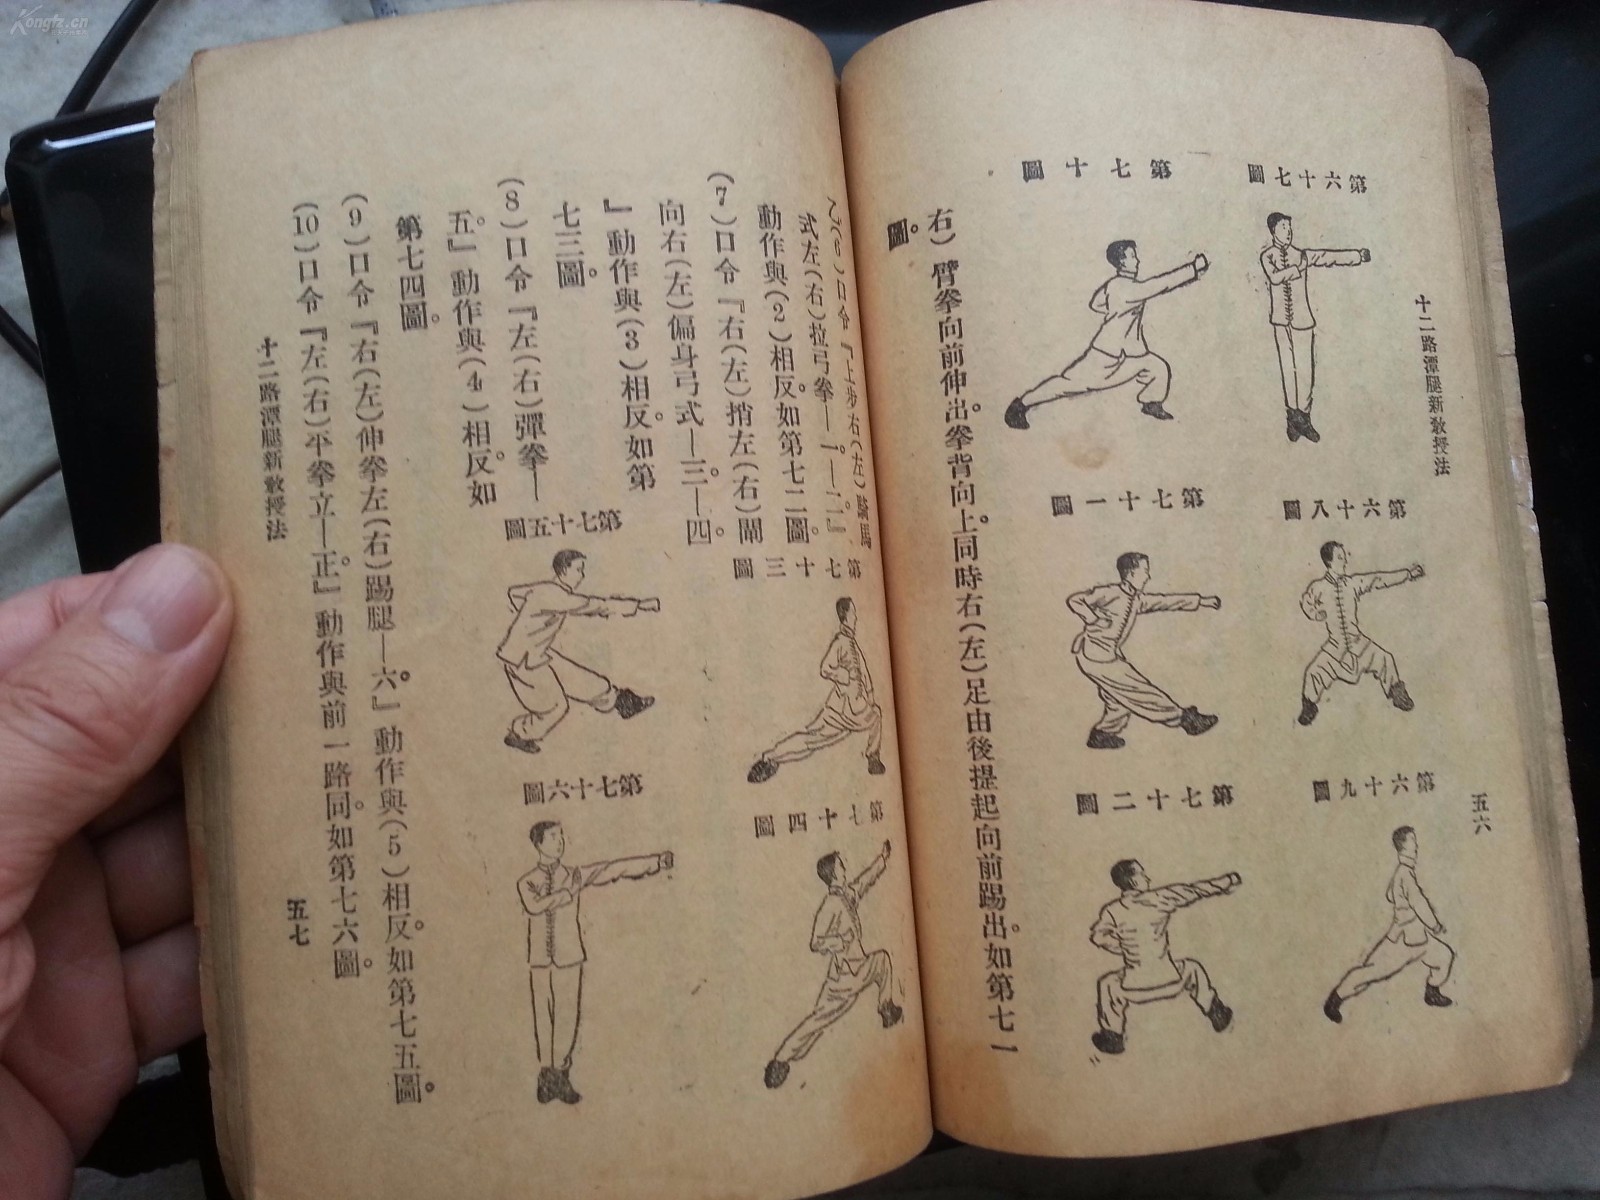 Kongfz.cn
十二路潭腿新教授法
五六
第六十七圖
第六十八圖
第六十九圖
第七十圖
第七十一圖
第七十二圖
右)臂拳向前伸出。拳背向上。同時右(左)足由後提起向前踢出。如第七一
圖。
(6)口令『上步右(左)騎馬
式左(右)拉弓拳——一。——二。』
動作與(2)相反。如第七二圖。
(7)口令『右(左)捎左(右)閘
向右(左)偏身弓式——三。——四。
』動作與(3)相反。如第
七三圖。
(8)口令『左(右)彈拳——
五。』動作與(4)相反。如
第七四圖。
第七十三圖
第七十四圖
第七十五圖
第七十六圖
(9)口令『右(左)伸拳左(右)踢腿——六。』動作與(5)相反。如第七五圖。
(10)口令『左(右)平拳立——正。』動作與前一路同。如第七六圖。
十二路潭腿新教授法
五七